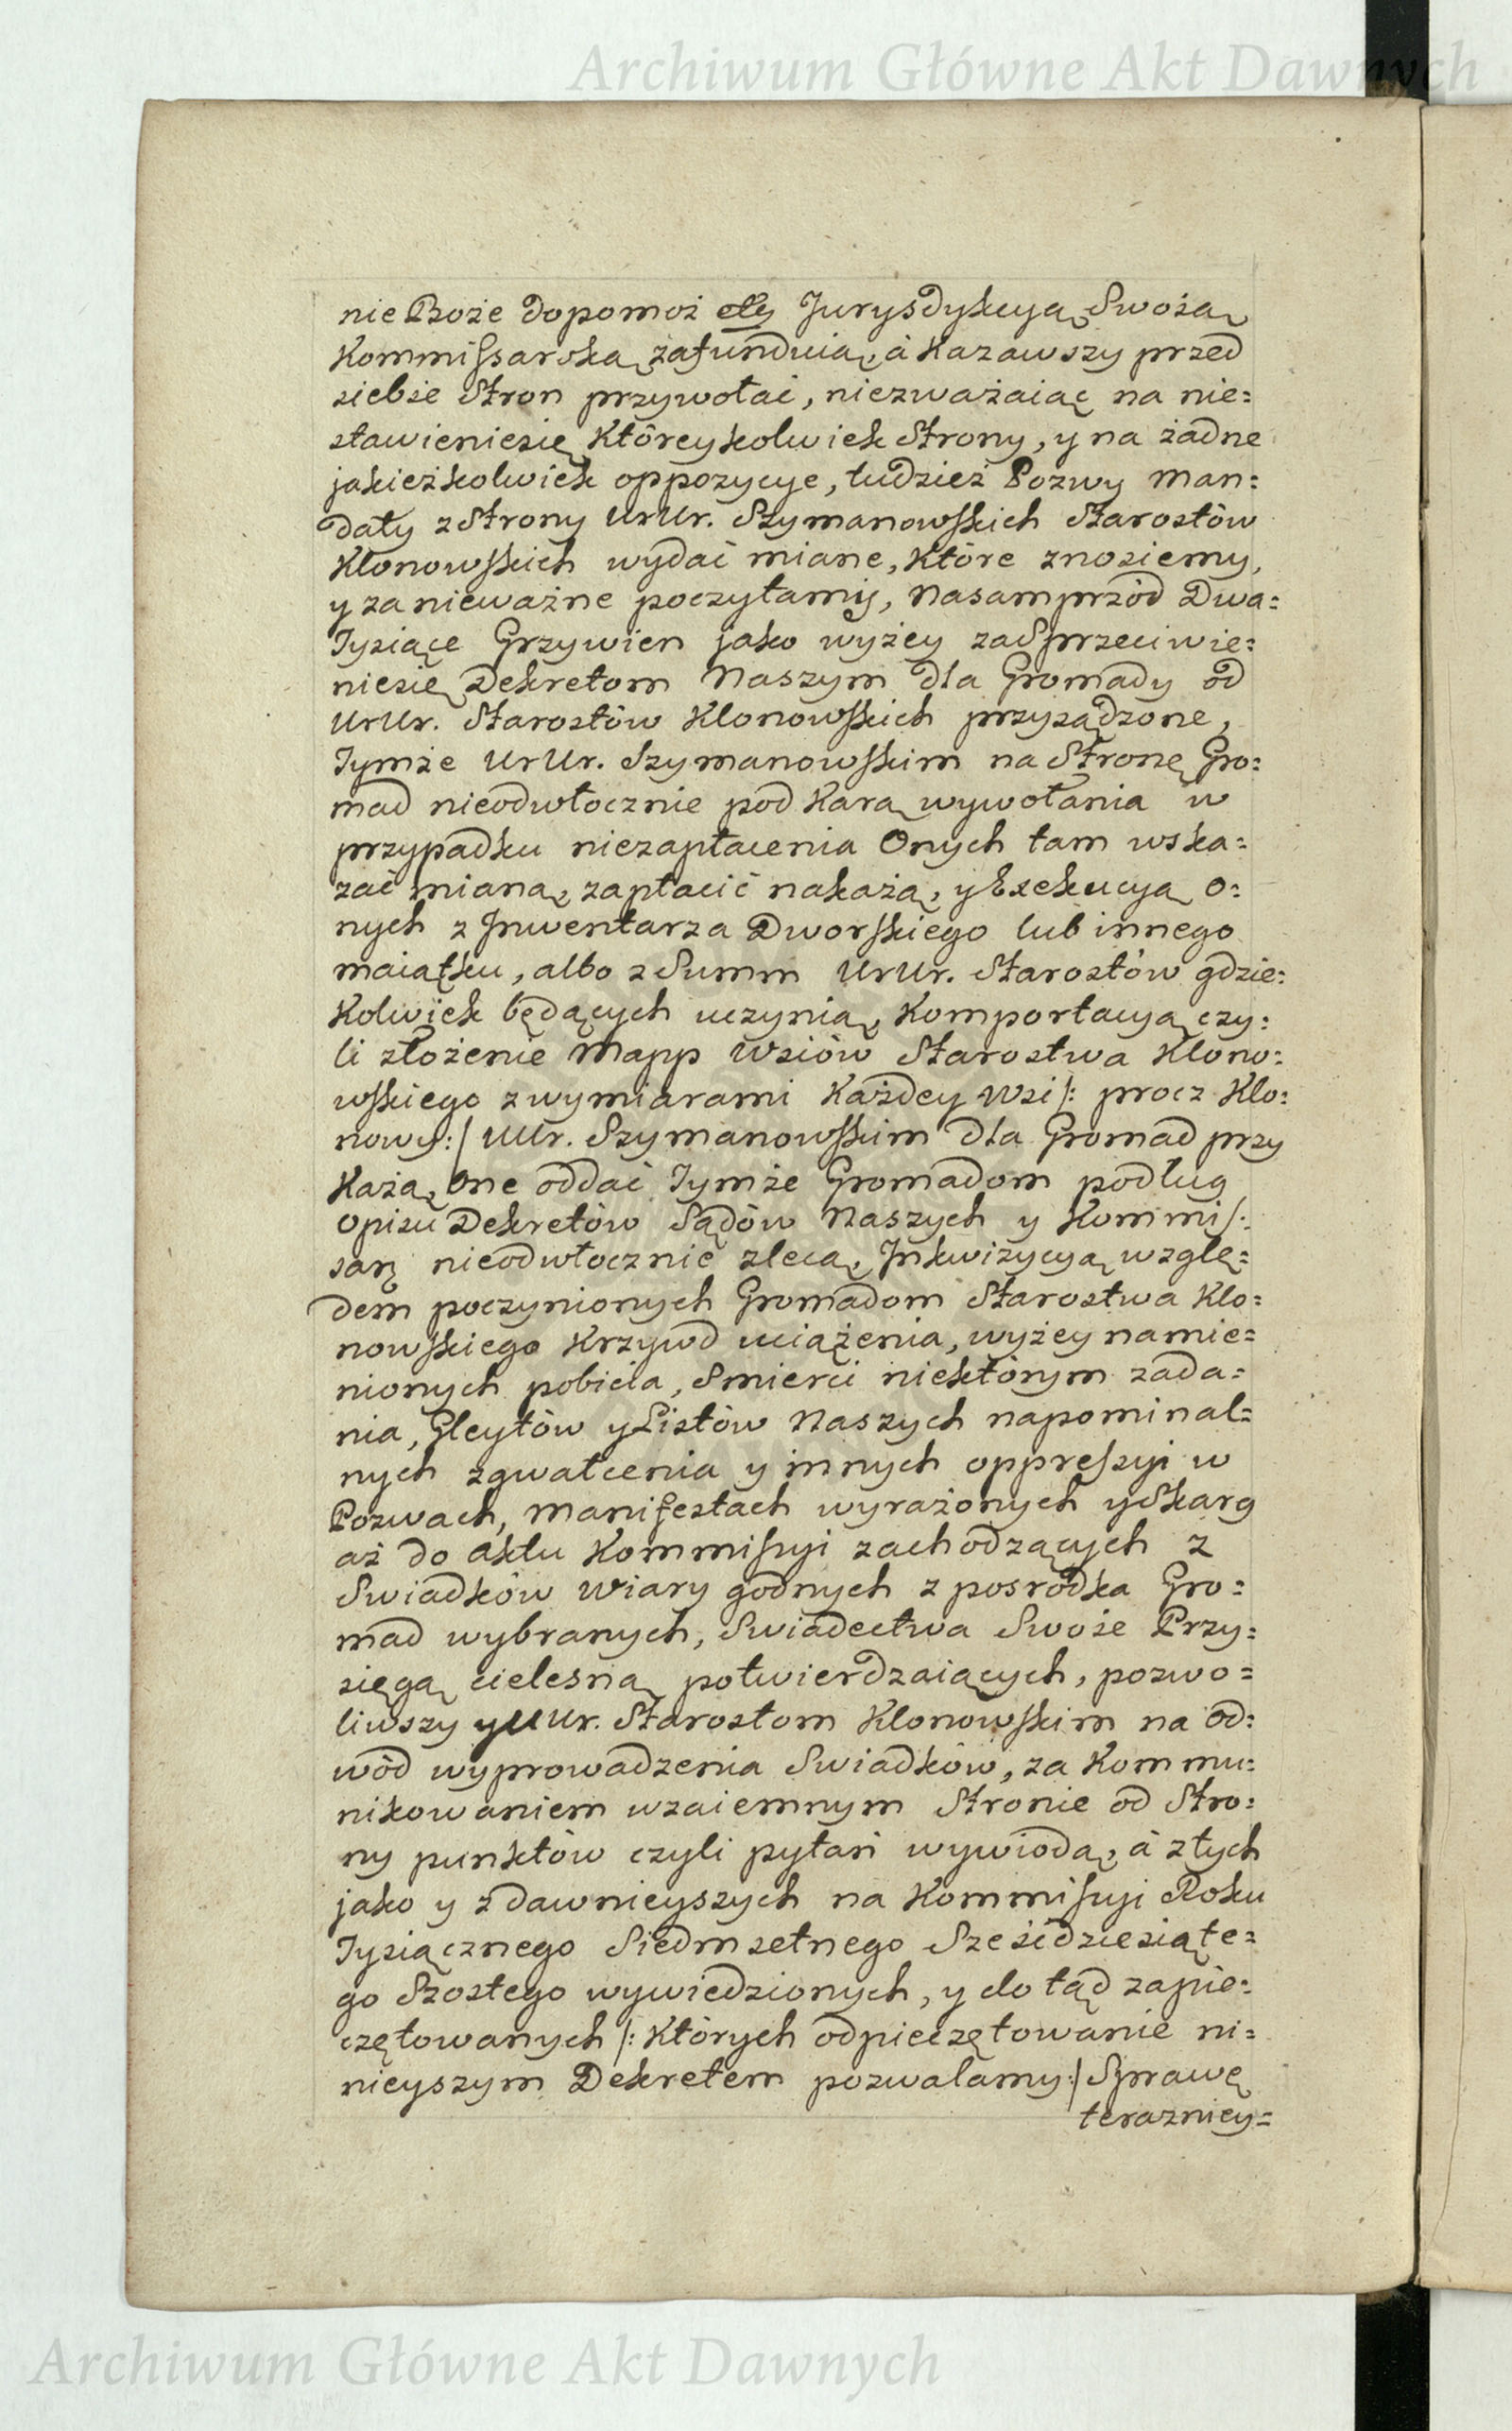 Archiwum Główne Akt Dawnych
nie Boże dopomoż etc Jurysdykcyą Swoią
Kommissarską zafunduią, à Kazawszy przed
siebie Stron przywołać, niezważaiąc na nie=
stawieniesię Któreykolwiek Strony, y na żadne
jakieżkolwiek oppozycye, tudzież Pozwy Man=
daty z Strony UrUr. Szymanowskich Starostów
Klonowskich wydać miane, Które znosiemy,
y za nieważne poczytamy, Nasamprzód Dwa=
Tysiące Grzywien jako wyżey za Sprzeciwie=
niesię Dekretom Naszym dla Gromady od
UrUr. Starostów Klonowskich przysądzone,
Tymże UrUr. Szymanowskim na Stronę Gro=
mad nieodwłocznie pod Karą wywołania w
przypadku niezapłacenia Onych tam wska=
zać mianą, zapłacić nakażą, y Exekucyą O=
nych z Jnwentarza Dworskiego lub innego
maiątku, albo z Summ UrUr. Starostów gdzie=
Kolwiek będących uczynią, Komportacyą czy=
li złożenie Mapp Wsiów Starostwa Klono=
wskiego z wymiarami Każdey Wsi /: procz Klo=
nowy :/ UUr. Szymanowskim dla Gromad przy
Każą, One oddać Tymże Gromadom podług
Opisu Dekretów Sądów Naszych y Kommis=
sarij nieodwłocznie zlecą, Jnkwizycyą wzglę=
dem poczynionych Gromadom Starostwa Klo=
nowskiego Krzywd uciążenia, wyżey namie=
nionych pobicia, Smierci niektórym zada=
nia, Gleytów y Listów Naszych napominal=
nych zgwałcenia y innych oppressyi w
Pozwach, Manifestach wyrażonych y Skarg
aż do aktu Kommissyi zachodzących z
Swiadków Wiary godnych z posrodka Gro=
mad wybranych, Swiadectwa Swoie Przy=
sięgą cielesną potwierdzaiących, pozwo=
liwszy y UUr. Starostom Klonowskim na od=
wód wyprowadzenia Swiadków, za Kommu=
nikowaniem wzaiemnym Stronie od Stro=
ny punktów czyli pytań wywiodą, à z tych
jako y z dawnieyszych na Kommissyi Roku
Tysiącznego Siedmsetnego Sześćdziesiąte=
go Szostego wywiedzionych, y do tąd zapie=
czętowanych /: Których odpieczętowanie ni=
nieyszym Dekretem pozwalamy :/ Sprawę
terazniey=
Archiwum Główne Akt Dawnych